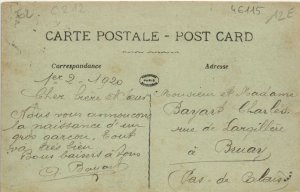 C212
4E115
12E
CARTE POSTALE - POST CARD
Correspondance
Adresse
1er 9 - 1920
PARIS
Cher frère et sœur
Nous vous annonçons
la naissance d'un
gros garçon. Tout
va très bien
Bons baisers à tous
Bayart
Monsieur et Madame
Bayart Charles
rue de
à Bruay
Pas-de-Calais